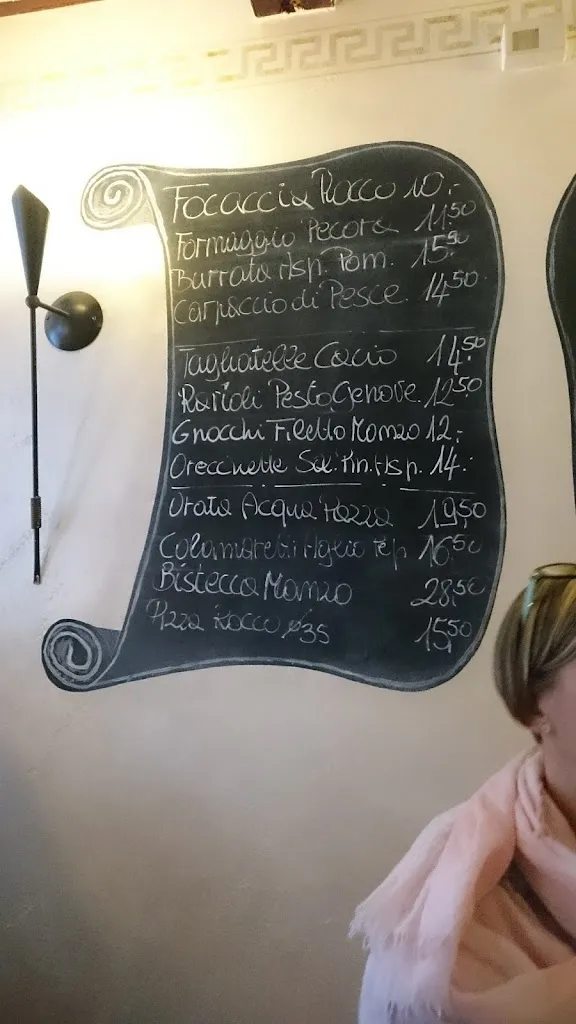 Focaccia Rocco 10.-
Formaggio Pecora 11,50
Burrata Asp. Pom. 15,90
Carpaccio di Pesce 14,50
Tagliatelle Cacio 14,50
Ravioli Pesto Genove. 12,50
Gnocchi Filetto Manzo 12.-
Orecchiette Sal. Fin. Asp. 14.-
Orata Acqua Pazza 19,50
Calamaretti Aglio Pep. 16,50
Bistecca Manzo 28,50
Pizza Rocco ø35 15,50